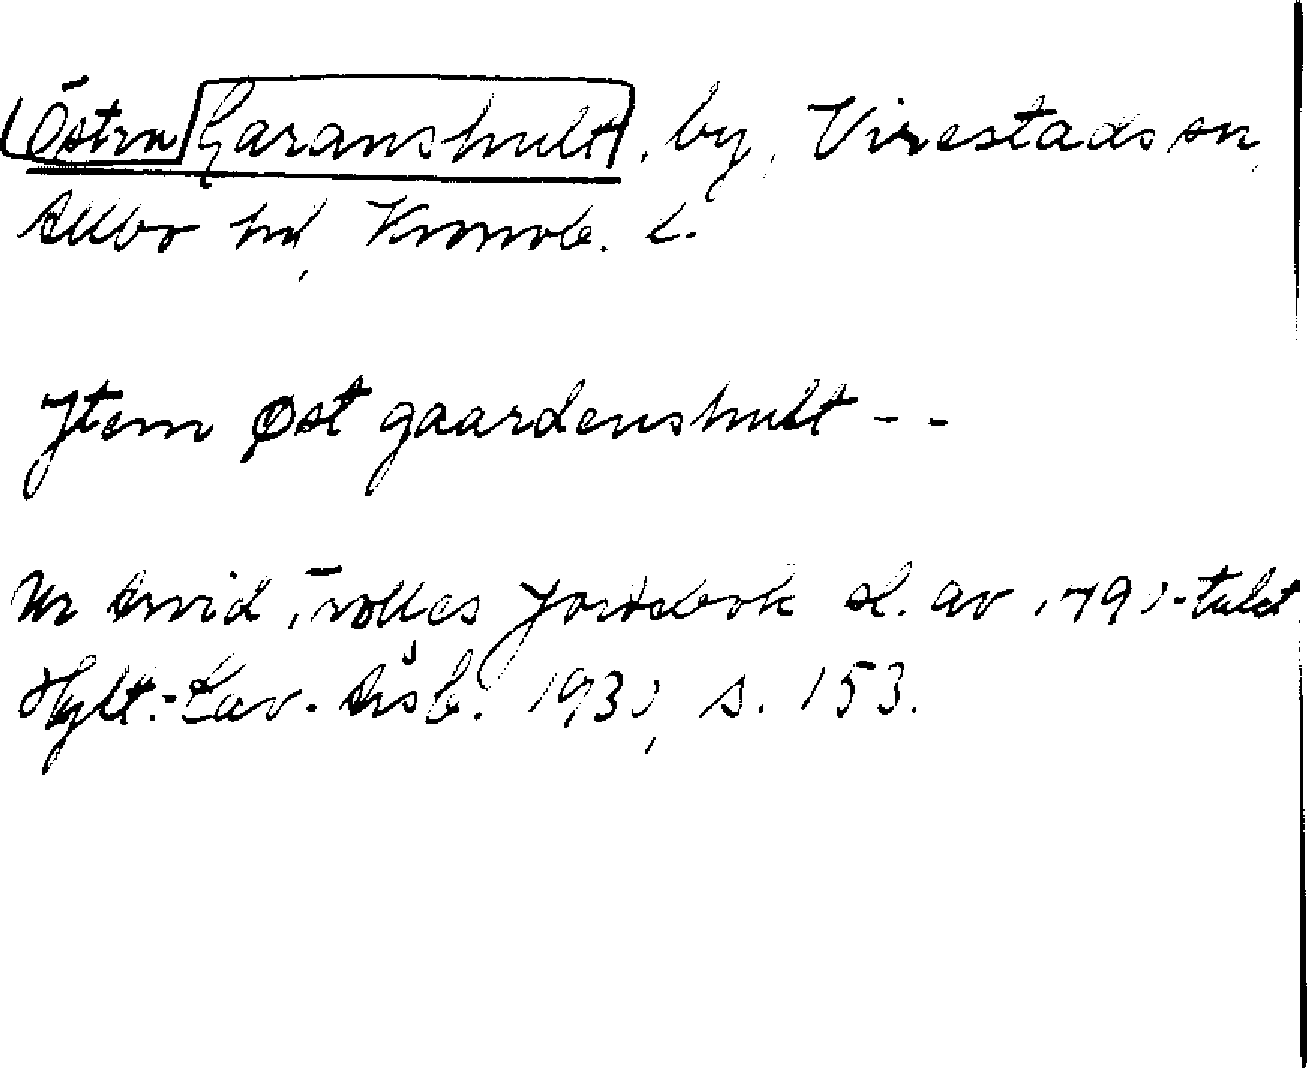 Östra Garanshult, by, Virestads sn,
Allbo hd, Kronob. l.
Jtem Øst gaardenshult - -
Ur Arvid Trolles Jordebok sl. av 1490-talet
Hylt.-Cav. Årsb. 1930, s. 153.